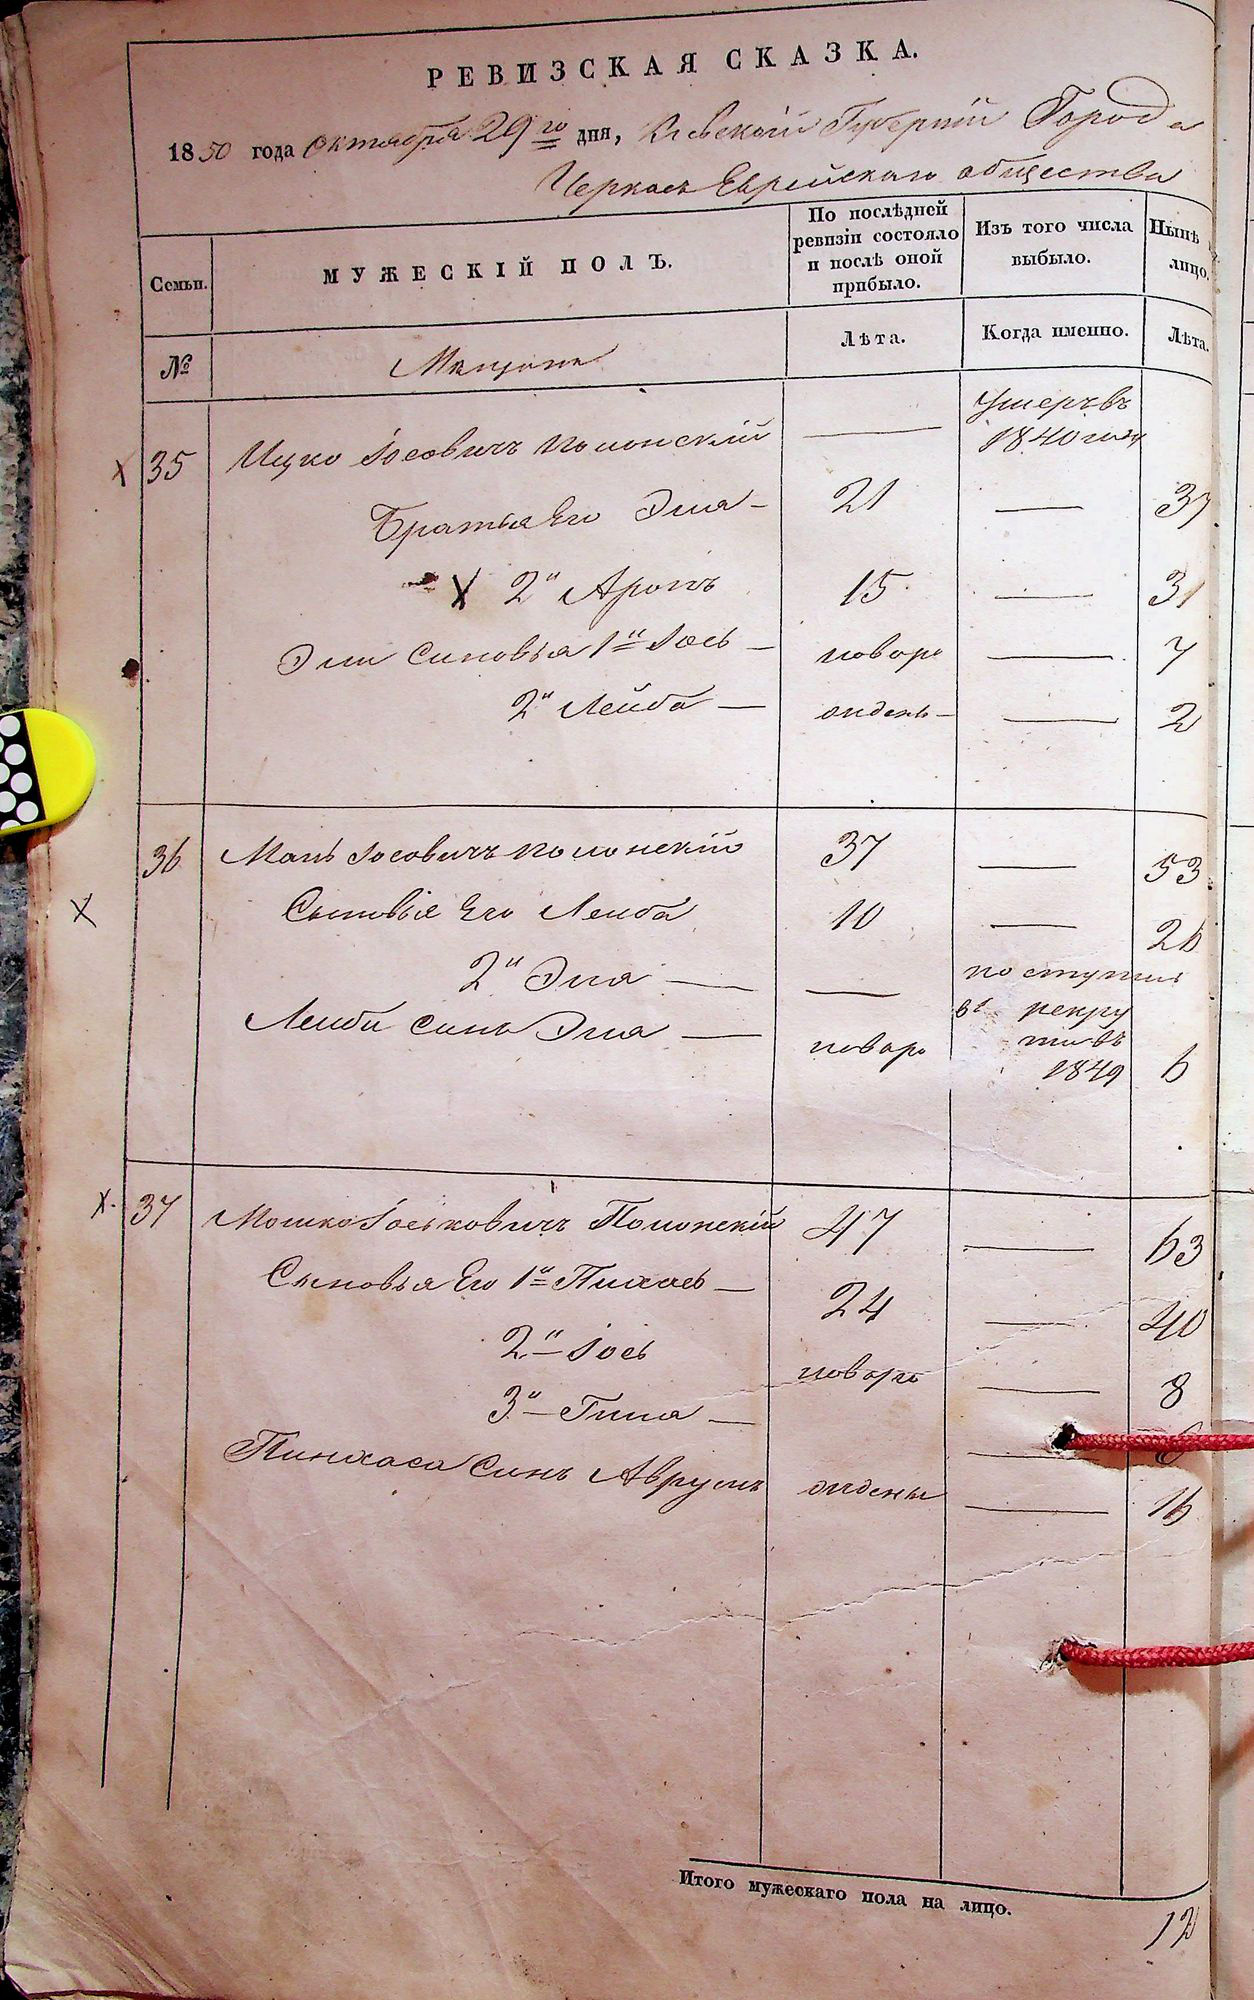 РЕВИЗСКАЯ СКАЗКА.
1850 года октября 29го дня, Киевской Губернии Города
Черкас Еврейскаго общества
Семьи.
МУЖЕСКІЙ ПОЛЪ.
По послѣдней ревизіи состояло и послѣ оной прибыло.
Изъ того числа выбыло.
Нынѣ лицо.
№
Мещане
Лѣта.
Когда именно.
Лѣта.
35 Ицко Іосовичъ Полонскій — Умеръ въ 1840 году
Братья Его Эля — 21 — 37
2й Аронъ 15 — 31
Эли Синовья 1й Іось — новоро — 7
2й Лейба — жденъ — 2
36 Мань Іосовичъ Полонскій 37 — 53
Сыновья Его Лейба 10 — 26
2й Эля — — поступил в рекруты въ 1849
Лейби Синъ Эля — новоро 6
37 Мошко Іоськовичъ Полонскій 47 — 63
Сыновья Его 1й Пинхас — 24 — 40
2й — Іось новоро — 8
3й — Гиля — — 6
Пинхаса Синъ Аврумъ ждены — 16
Итого мужескаго пола на лицо.
12